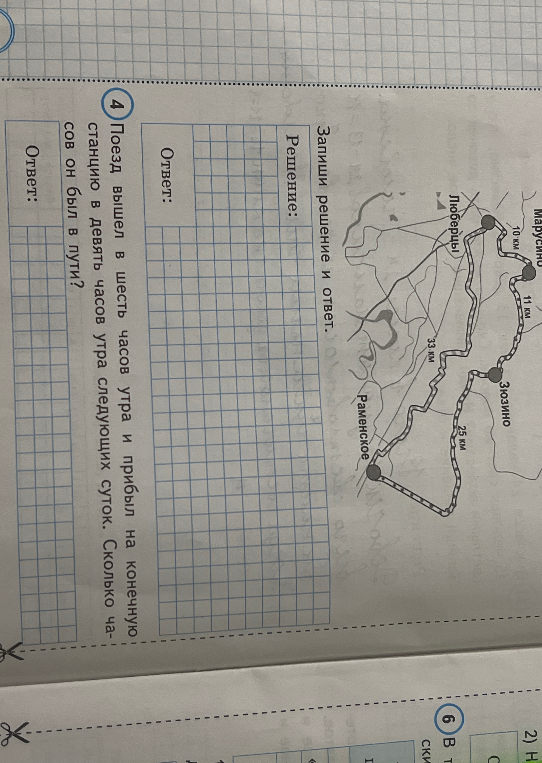 Марусино
10 км
11 км
Люберцы
Зюзино
33 км
25 км
Раменское
Запиши решение и ответ.
Решение:
Ответ:
4 Поезд вышел в шесть часов утра и прибыл на конечную
станцию в девять часов утра следующих суток. Сколько ча-
сов он был в пути?
Ответ:
2) Н
6 В т
ски